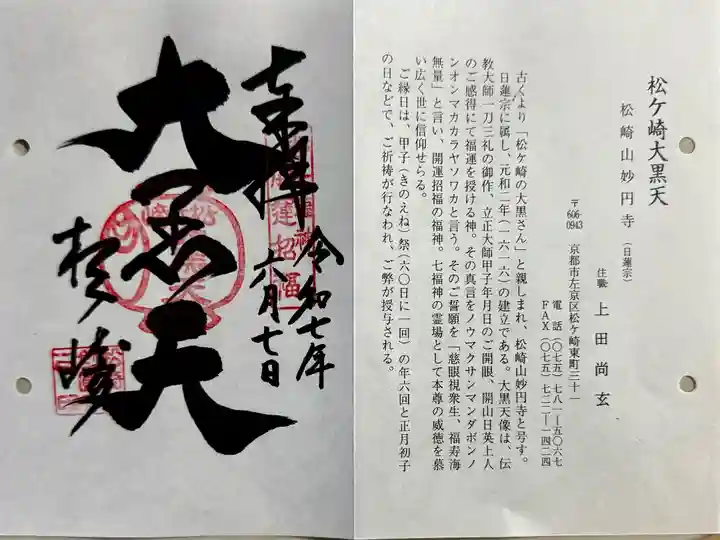 奉拝
令和七年
六月七日
大黒天
松ヶ崎
開運招福
松ケ崎大黒天
松崎山妙円寺（日蓮宗）
住職 上田尚玄
〒606-0943 京都市左京区松ケ崎東町三十一
電話（〇七五）七八一―五〇六七
FAX（〇七五）七二二―一四二四
古くより「松ケ崎の大黒さん」と親しまれ、松崎山妙円寺と号す。
日蓮宗に属し、元和二年（一六一六）の建立である。大黒天像は、伝
教大師一刀三礼の御作、立正大師甲子年月日のご開眼、開山日英上人
のご感得にて福運を授ける神。その真言をノウマクサンマンダボンノ
ンオンマカカラヤソワカと言う。そのご誓願を「慈眼視衆生、福寿海
無量」と言い、開運招福の福神。七福神の霊場として本尊の威徳を慕
い広く世に信仰せらる。
ご縁日は、甲子（きのえね）祭（六〇日に一回）の年六回と正月初子
の日などで、ご祈祷が行なわれ、ご弊が授与される。